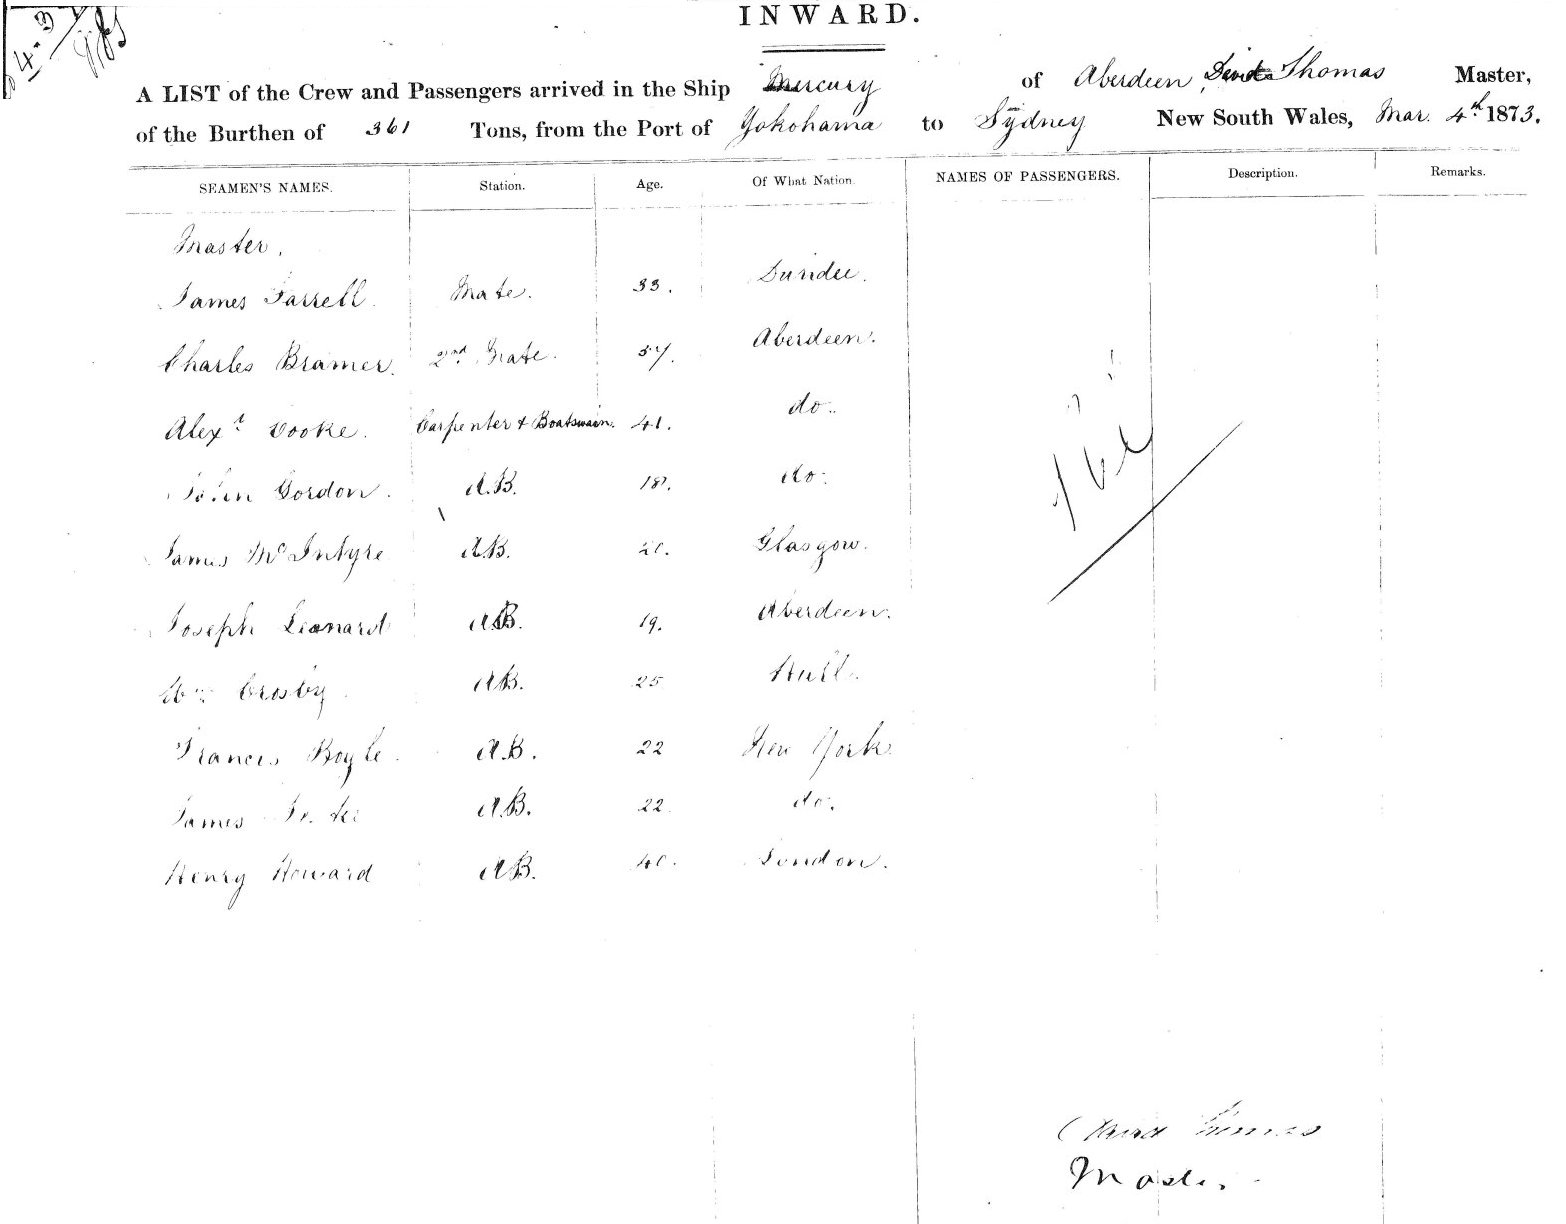 4. 3
INWARD.
A LIST of the Crew and Passengers arrived in the Ship Mercury of Aberdeen, David Thomas Master,
of the Burthen of 361 Tons, from the Port of Yokohama to Sydney New South Wales, Mar. 4th 1873.
SEAMEN'S NAMES. Station. Age. Of What Nation. NAMES OF PASSENGERS. Description. Remarks.
Master.
James Farrell. Mate. 33. Dundee.
Charles Bramer. 2nd Mate. Aberdeen.
Alexr Cooke. Carpenter & Boatswain. 41. do.
John Gordon. A.B. 18. do.
James McIntyre A.B. 20. Glasgow.
Joseph Leonard A.B. 19. Aberdeen.
Wm Crosby. A.B. 25 Hull.
Francis Boyle. A.B. 22 New York
James A.B. 22. do.
Henry Howard A.B. 40. London.
Nil
David Thomas
Master.